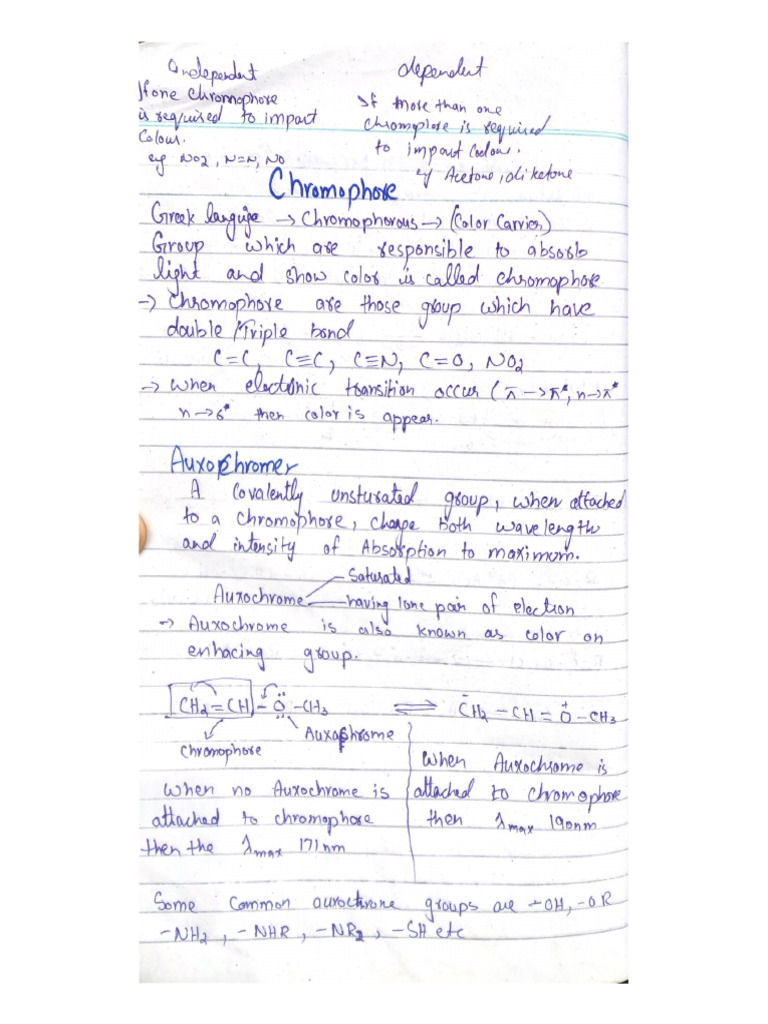 Independent
If one chromophore
is required to impact
Colour.
eg NO2, N=N, NO
dependent
If more than one
chromophore is required
to impact Coolour.
eg Acetone, diketone
Chromophore
Greek languije → Chromophorous → (Color Carrier)
Group which are responsible to absorb
light and show color is called chromophore
→ Chromophore are those group which have
double/Triple bond
C=C, C≡C, C≡N, C=O, NO2
→ When electronic transition occur (π→π*, n→π*
n→6* then color is appear.
Auxochromer
A Covalently unsturated group, when attached
to a chromophore, change both wavelength
and intensity of Absorption to maximum.
Saturated
Auxochrome having lone pair of election
→ Auxochrome is also known as color on
enhacing group.
CH2=CH-Ö-CH3 ⇌ C̄H2-CH=O⁺-CH3
Auxochrome
Chromophore
When no Auxochrome is
attached to chromophore
then the λmax 171nm
When Auxochrome is
attached to chromophore
then λmax 190nm
Some Common auxochrone groups are -OH, -OR
-NH2, -NHR, -NR2, -SH etc